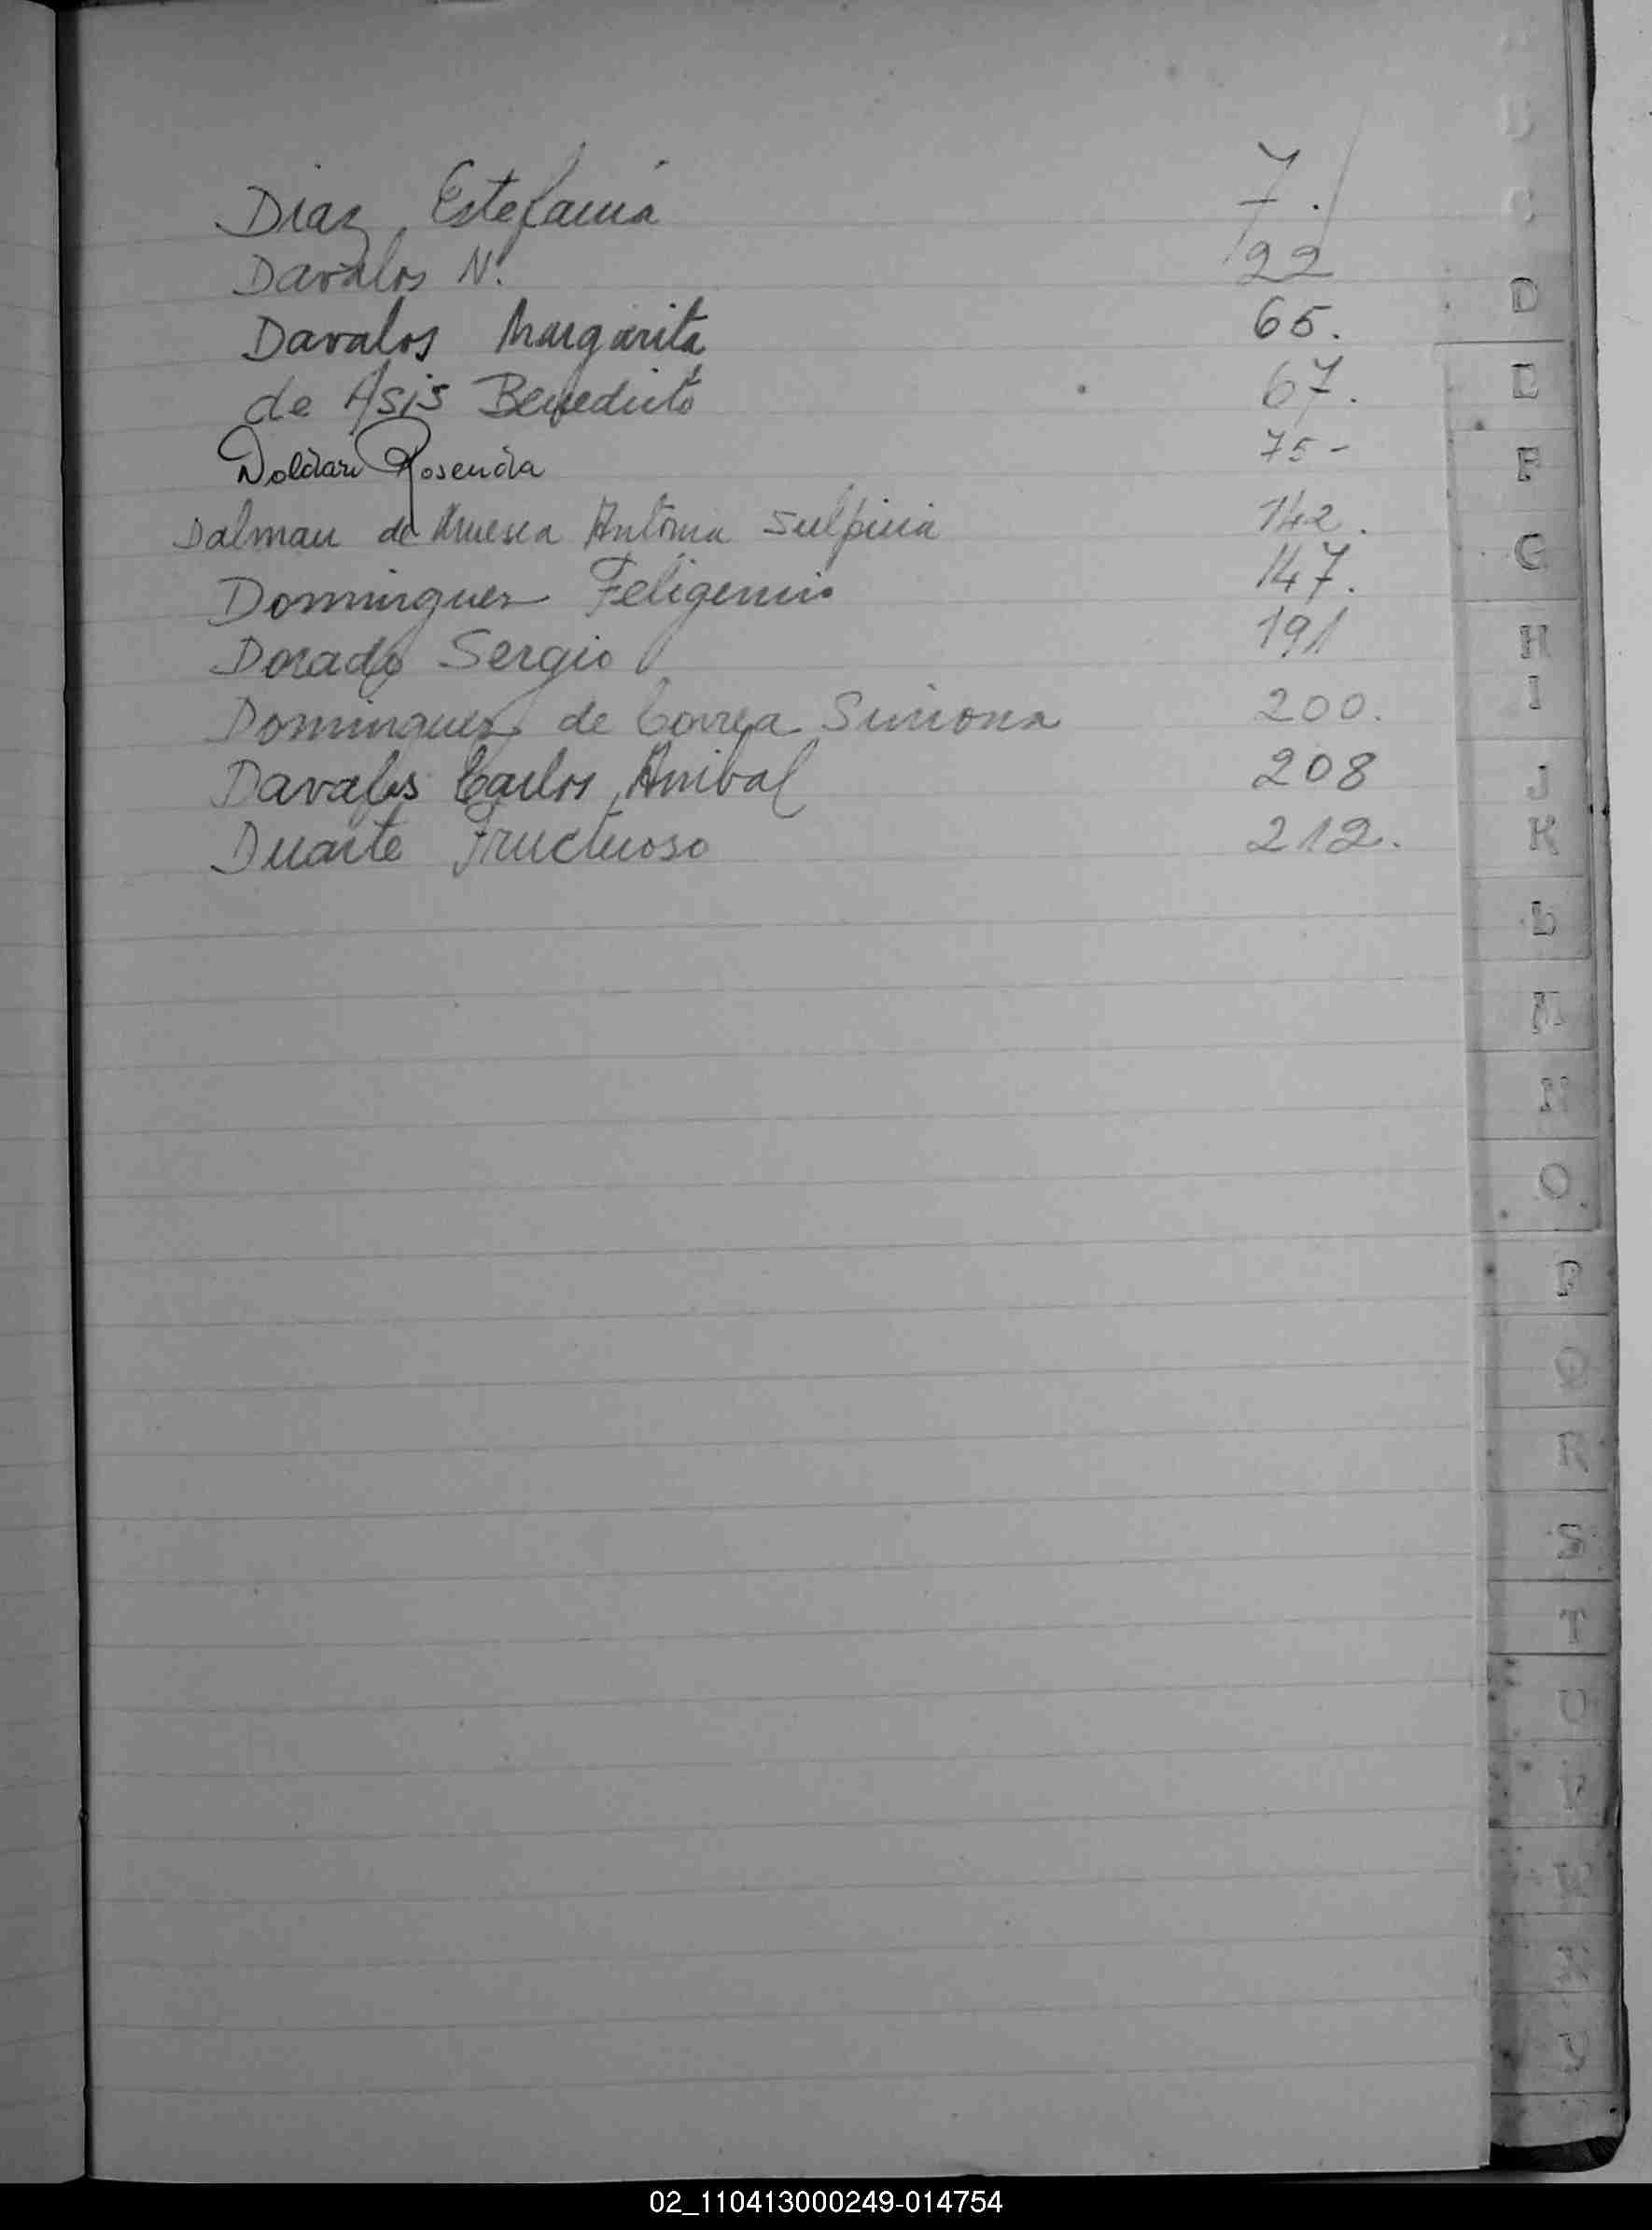 Diaz, Estefanía 7.
Davalos N. 22
Davalos Margarita 65.
de Asis Benedicto 67.
Doldan Rosenda 75-
Dalman de Antonia Sulpicia 142.
Dominguez 147.
Dorado Sergio 191
Dominguez de Correa Simona 200.
Davalos Carlos Anibal 208
Duarte Fructuoso 212.
B
C
D
E
F
G
H
I
J
K
L
M
N
O
P
Q
R
S
T
U
V
02_110413000249-014754